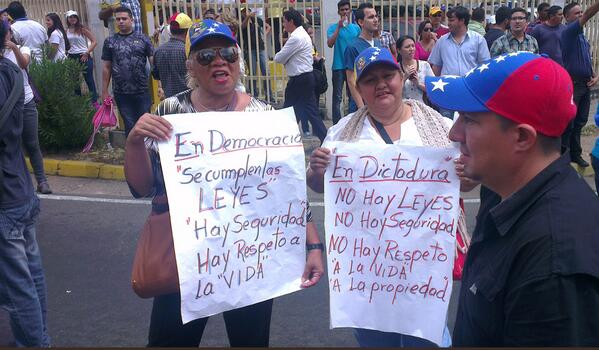 En Democracia
"Se cumplen las
LEYES"
"Hay Seguridad"
Hay Respeto a
la "VIDA"
En Dictadura"
NO Hay LEYES
NO Hay Seguridad
NO Hay Respeto
"A LA VIDA"
"A La propiedad"